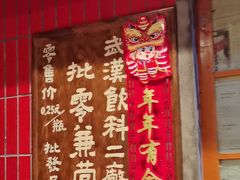 年年有余
武漢飲料二廠
批零兼营
零售价0.25元/瓶
批發